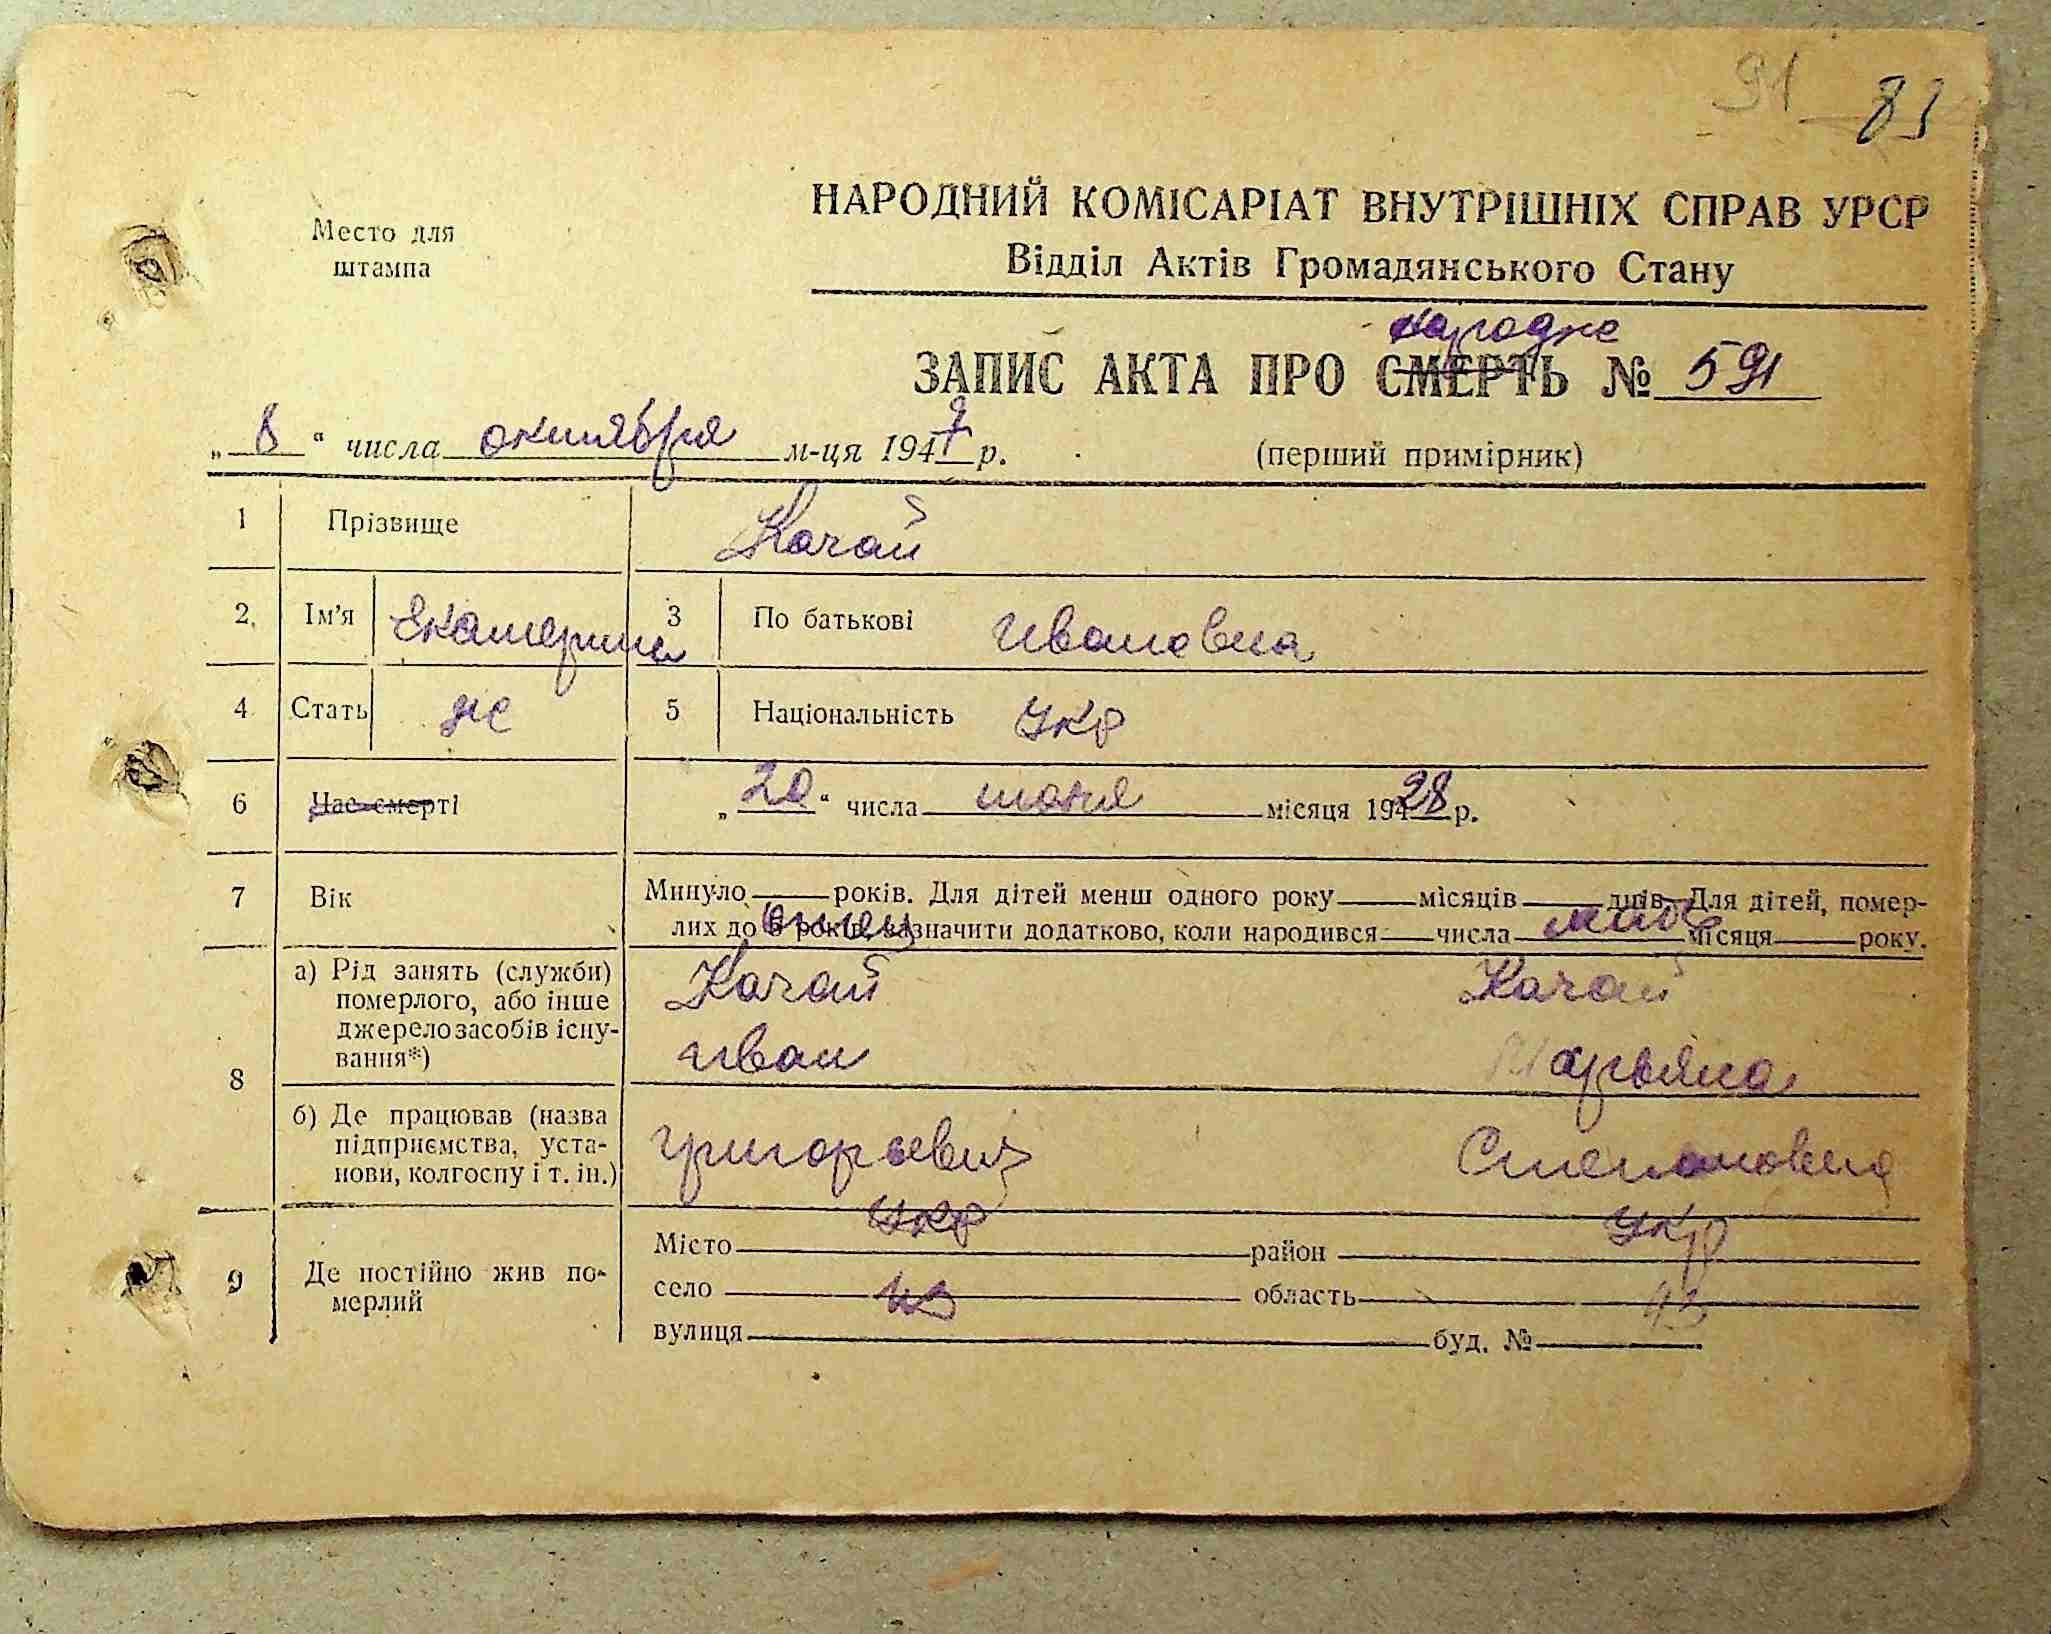 91 83
Место для
штампа
НАРОДНИЙ КОМІСАРІАТ ВНУТРІШНІХ СПРАВ УРСР
Відділ Актів Громадянського Стану
народже
ЗАПИС АКТА ПРО СМЕРТЬ № 591
„ 8 “ числа октября м-ця 1947 р. (перший примірник)
1 Прізвище Качай
2. Ім'я Екатерина 3 По батькові Ивановна
4 Стать же 5 Національність Укр
6 Час смерті „ 20 “ числа июня місяця 1928 р.
7 Вік Минуло років. Для дітей менш одного року місяців днів. Для дітей, помер-
лих до 5 років, зазначити додатково, коли народився числа місяця року.
отец мать
8 а) Рід занять (служби)
померлого, або інше
джерело засобів існу-
вання*)
Качай Качай
Иван Марьяна
б) Де працював (назва
підприємства, уста-
нови, колгоспу і т. ін.)
Григорьевич Степановна
Укр Укр
9 Де постійно жив по-
мерлий
Місто район
село область
вулиця буд. №